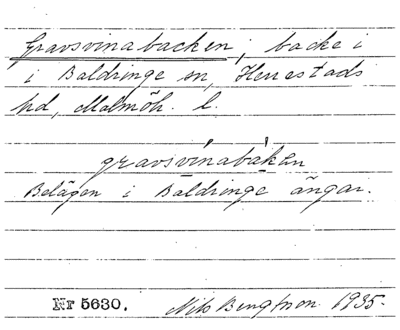 Gravsvinabacken, backe i
i Baldringe sn, Herrestads
hd, Malmöh. l.
gravsvinabàken
Belägen i Baldringe ängar.
Nr 5630. Nils Bengtson 1935.